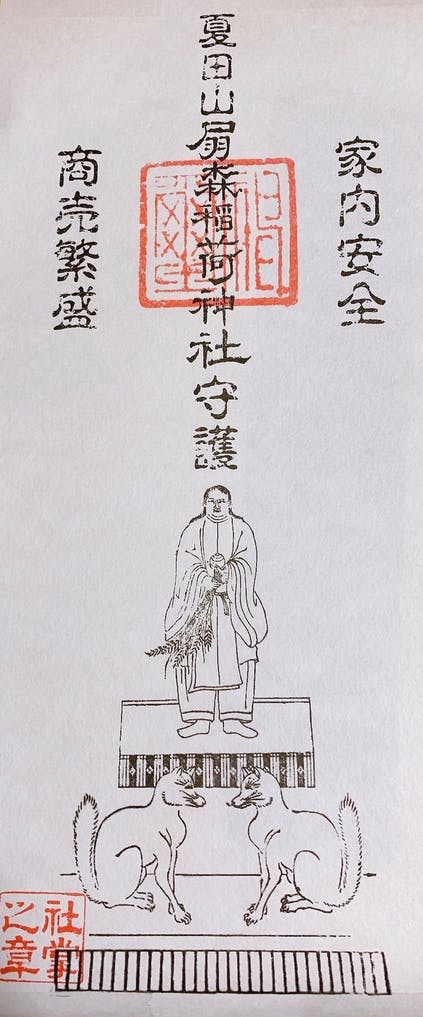 家内安全
夏田山扇森稲荷神社守護
商売繁盛
社掌
之章